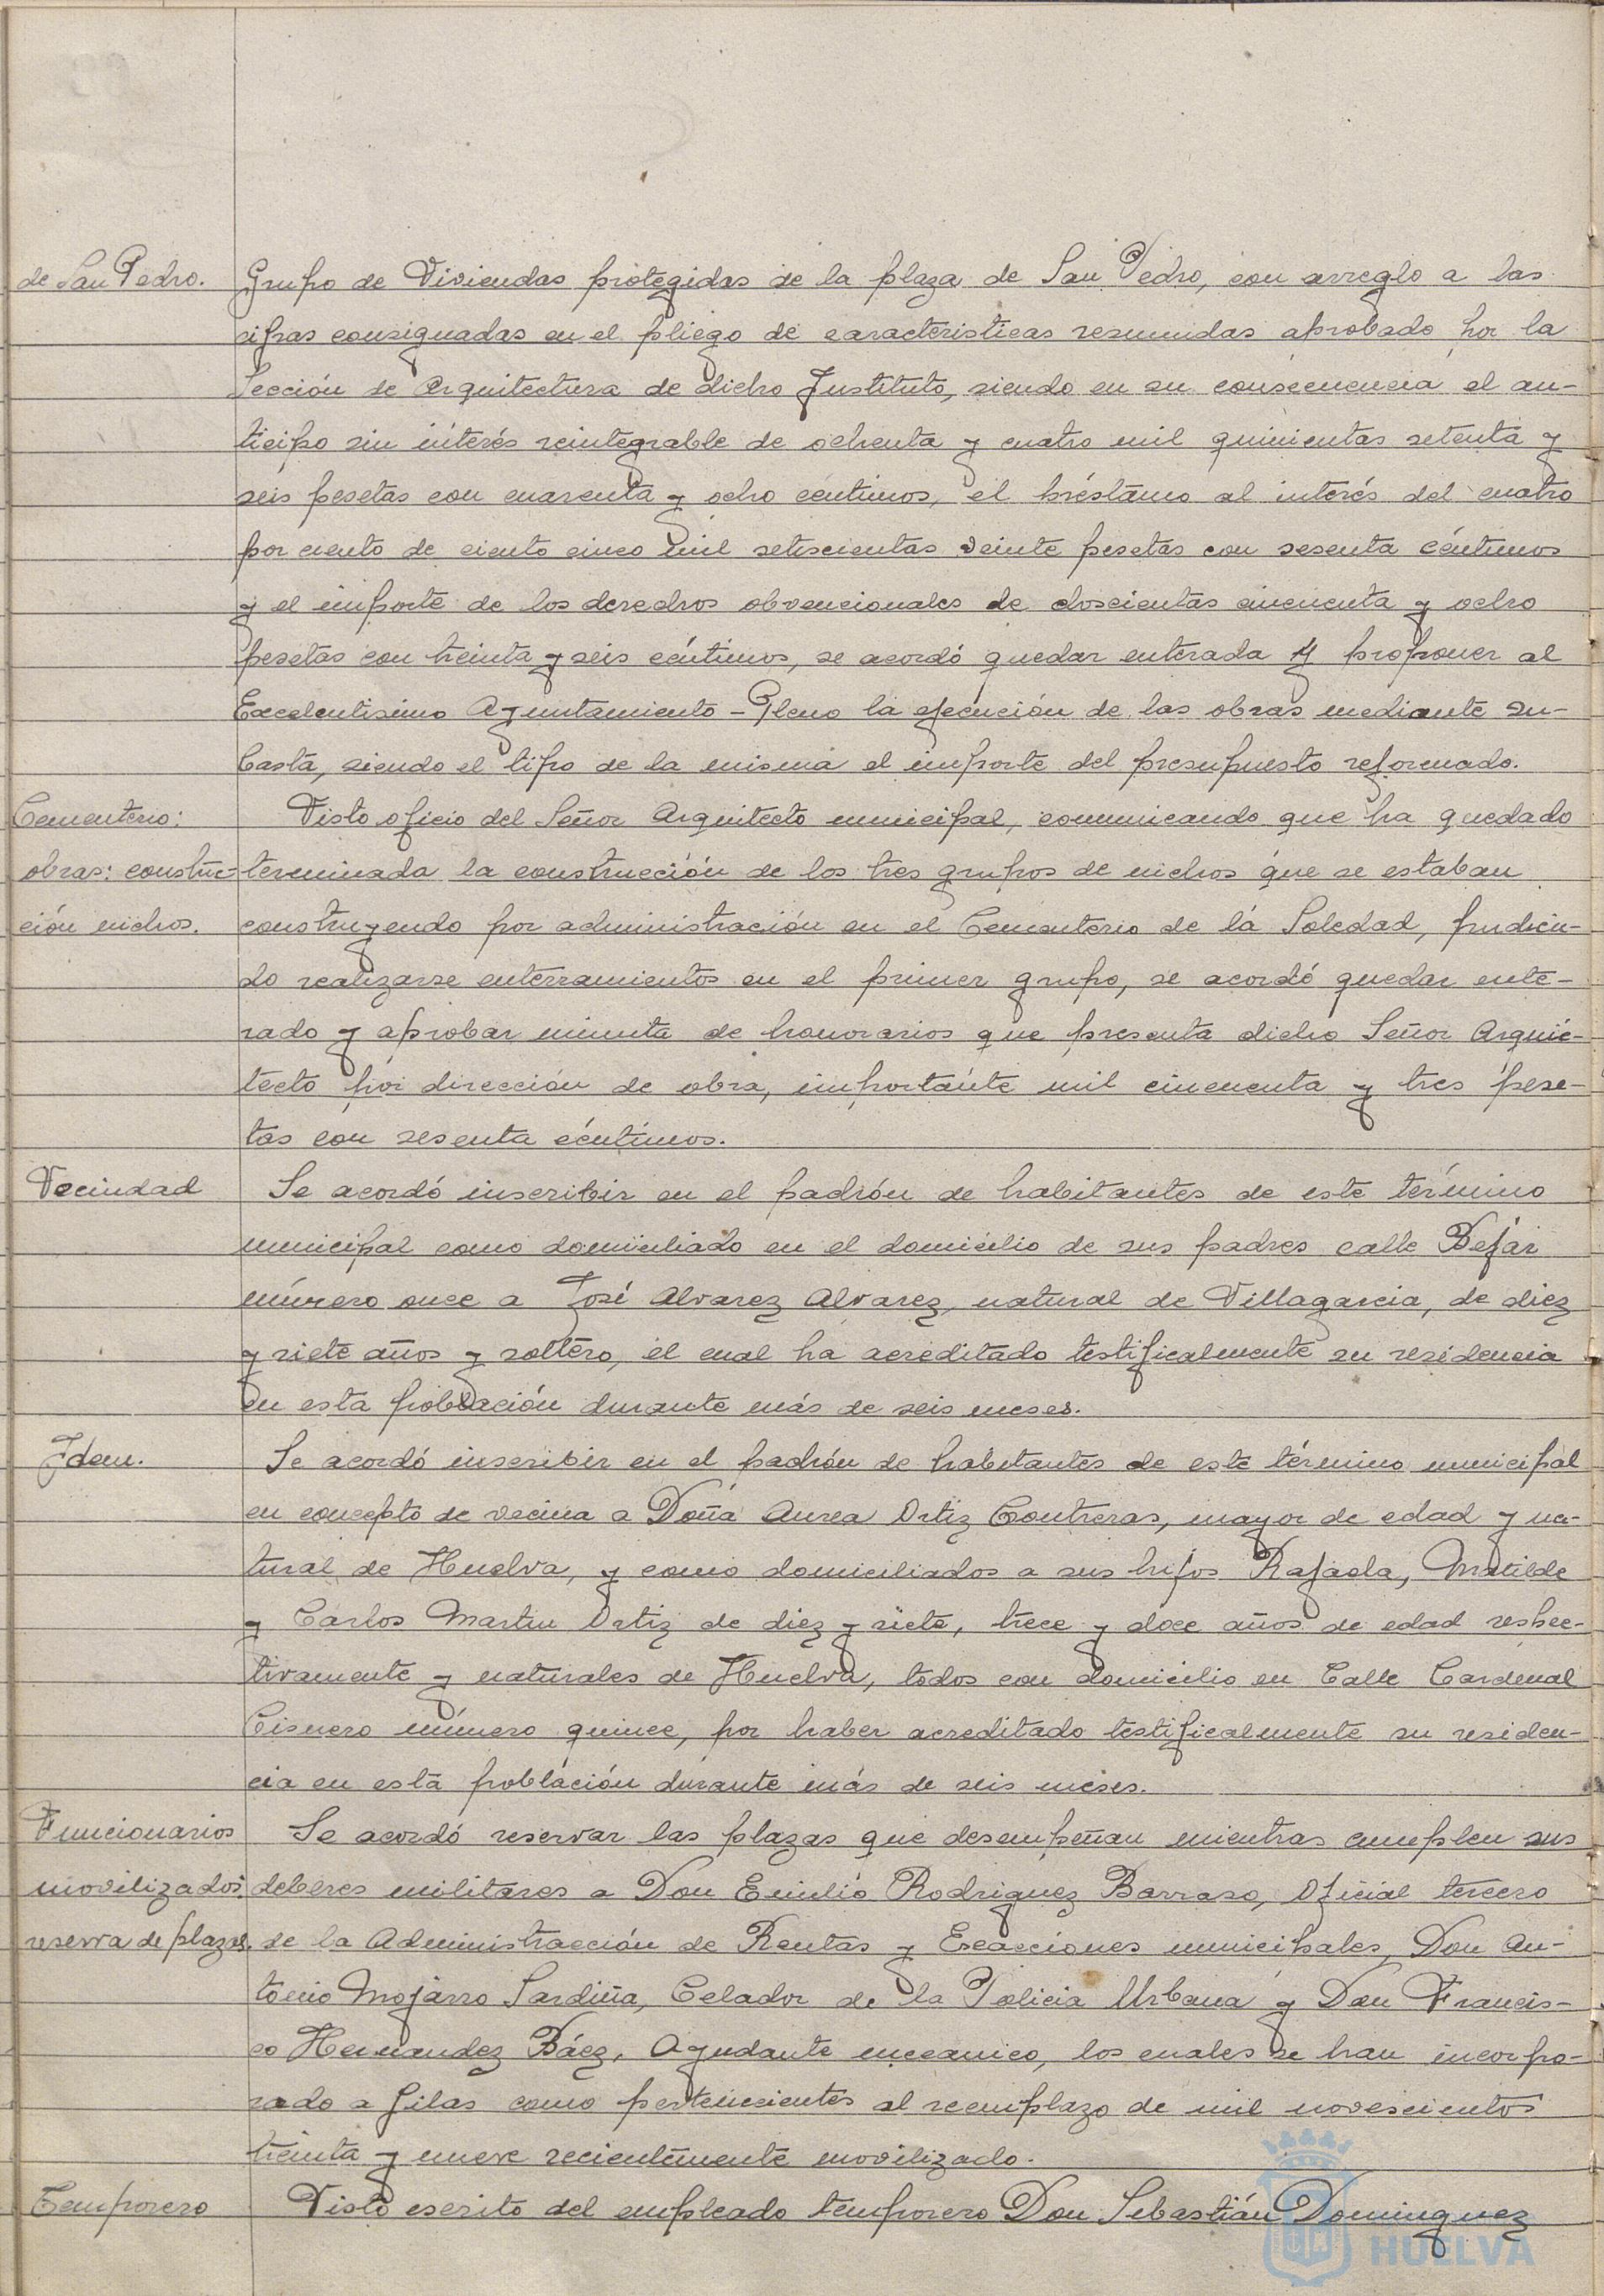 de San Pedro. Grupo de Viviendas protegidas de la plaza de San Pedro, con arreglo a las
cifras consignadas en el pliego de caracteristicas resumidas aprobado por la
Sección de Arquitectura de dicho Instituto, siendo en su consecuencia el an-
ticipo sin interés reintegrable de ochenta y cuatro mil quinientas setenta y
seis pesetas con cuarenta y ocho centimos, el préstamo al interés del cuatro
por ciento de ciento cinco mil setescientas veinte pesetas con sesenta céntimos
y el importe de los derechos obvencionales de doscientas cincuenta y ocho
pesetas con treinta y seis céntimos, se acordó quedar enterada y proponer al
Excelentisimo Ayuntamiento-Pleno la ejecución de las obras mediante su-
basta, siendo el tipo de la misma el importe del presupuesto reformado.
Cementerio: Visto oficio del Señor Arquitecto municipal, comunicando que ha quedado
obras: construc- terminada la construcción de los tres grupos de nichos que se estaban
ción nichos. construyendo por administración en el Cementerio de la Soledad, pudien-
do realizarse enterramientos en el primer grupo, se acordó quedar ente-
rado y aprobar minuta de honorarios que presenta dicho Señor Arqui-
tecto por dirección de obra, importante mil cincuenta y tres pese-
tas con sesenta céntimos.
Vecindad Se acordó inscribir en el padrón de habitantes de este término
municipal como domiciliado en el domicilio de sus padres calle Bejar
número once a José Alvarez Alvarez, natural de Villagarcia, de diez
y siete años y soltero, el cual ha acreditado testificalmente su residencia
en esta población durante más de seis meses.
Idem. Se acordó inscribir en el padrón de habitantes de este término municipal
en concepto de vecina a Doña Aurea Ortiz Contreras, mayor de edad y na-
tural de Huelva, y como domiciliados a sus hijos Rafaela, Matilde
y Carlos Martin Ortiz de diez y siete, trece y doce años de edad respec-
tivamente y naturales de Huelva, todos con domicilio en Calle Cardenal
Cisnero número quince, por haber acreditado testificalmente su residen-
cia en esta población durante más de seis meses.
Funcionarios Se acordó reservar las plazas que desempeñan mientras cumplen sus
movilizados deberes militares a Don Emilio Rodriguez Barraso, Oficial tercero
reserva de plazas. de la Administracción de Rentas y Exacciones municipales, Don An-
tonio Mojarro Sardiña, Celador de la Policia Urbana y Don Francis-
co Hernandez Báez, Ayudante mecanico, los cuales se han incorpo-
rado a filas como pertenecientes al reemplazo de mil novescientos
treinta y nueve recientemente movilizado.
Temporero Visto escrito del empleado temporero Don Sebastián Dominguez
HUELVA